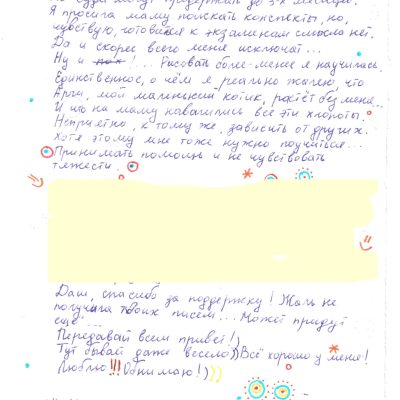 не суда могут продержать до 3-х месяцев.
Я просила маму поискать конспекты, но,
чувствую, готовится к экзаменам смысла нет.
Да и скорее всего меня исключат...
Ну и !... Рисовать более-менее я научилась.
Единственное, о чём я реально жалею, что
Арчи, мой маленький котик, растёт без меня...
И что на маму навалились все эти хлопоты.
Неприятно, к тому же, зависить от других.
Хотя этому мне тоже нужно поучиться...
Принимать помощь и не чувствовать
тяжести.
Даш, спасибо за поддержку! Жаль не
получила твоих писем... Может придут
ещё...
Передавай всем привет!)
Тут бывает даже весело)) Всё хорошо у меня!
Люблю!!! Обнимаю!)))